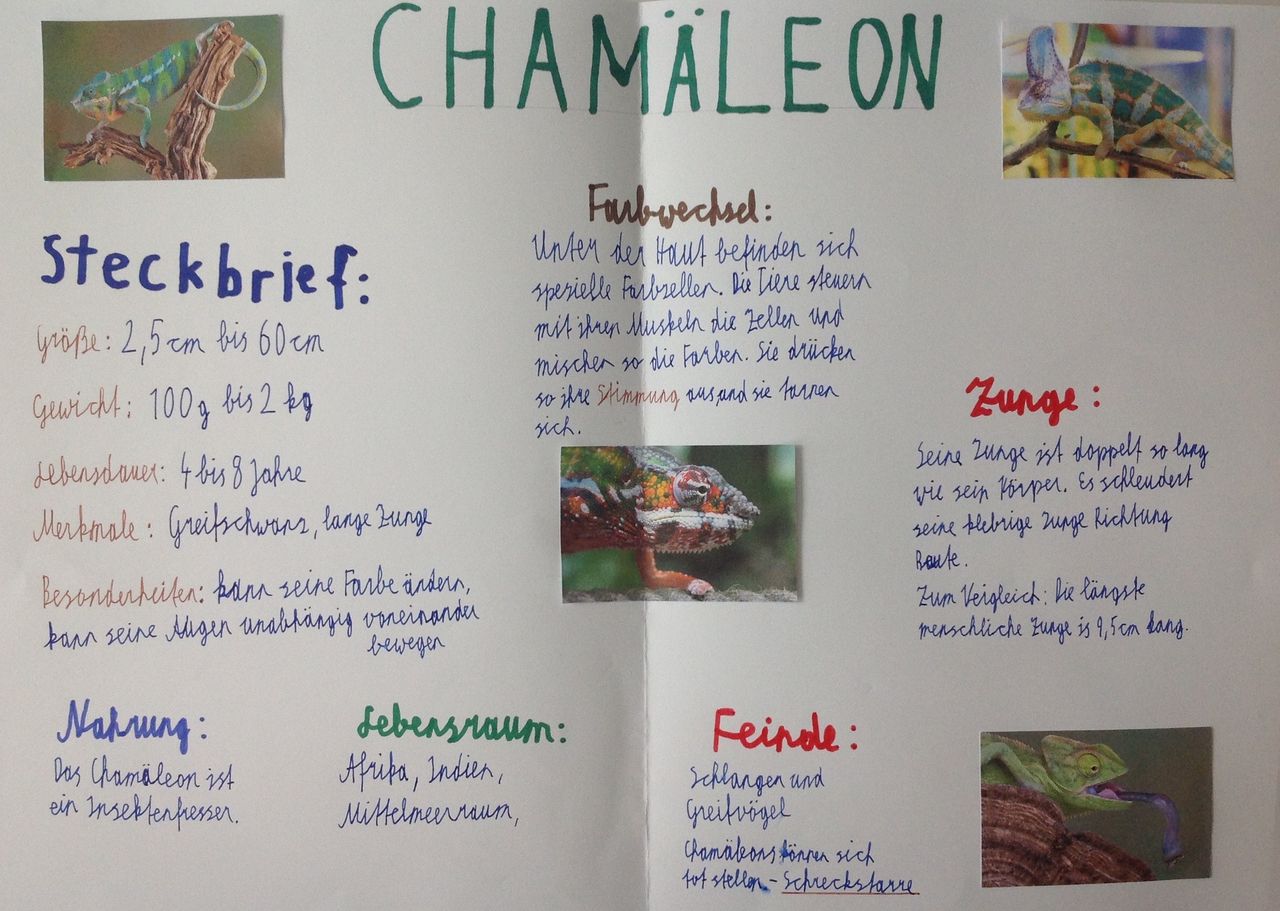 CHAMÄLEON
Steckbrief:
Größe: 2,5cm bis 60cm
Gewicht: 100g bis 2 kg
Lebensdauer: 4 bis 8 Jahre
Merkmale: Greifschwanz, lange Zunge
Besonderheiten: kann seine Farbe ändern,
kann seine Augen unabhängig voneinander
bewegen
Farbwechsel:
Unter der Haut befinden sich
spezielle Farbzellen. Die Tiere steuern
mit ihren Muskeln die Zellen und
mischen so die Farben. Sie drücken
so ihre Stimmung aus, und sie tarnen
sich.
Zunge:
Seine Zunge ist doppelt so lang
wie sein Körper. Es schleudert
seine klebrige Zunge Richtung
Beute.
Zum Vergleich: Die längste
menschliche Zunge is 9,5cm lang.
Nahrung:
Das Chamäleon ist
ein Insektenfresser.
Lebensraum:
Afrika, Indien,
Mittelmeerraum,
Feinde:
Schlangen und
Greifvögel
Chamäleons können sich
tot stellen - Schreckstarre